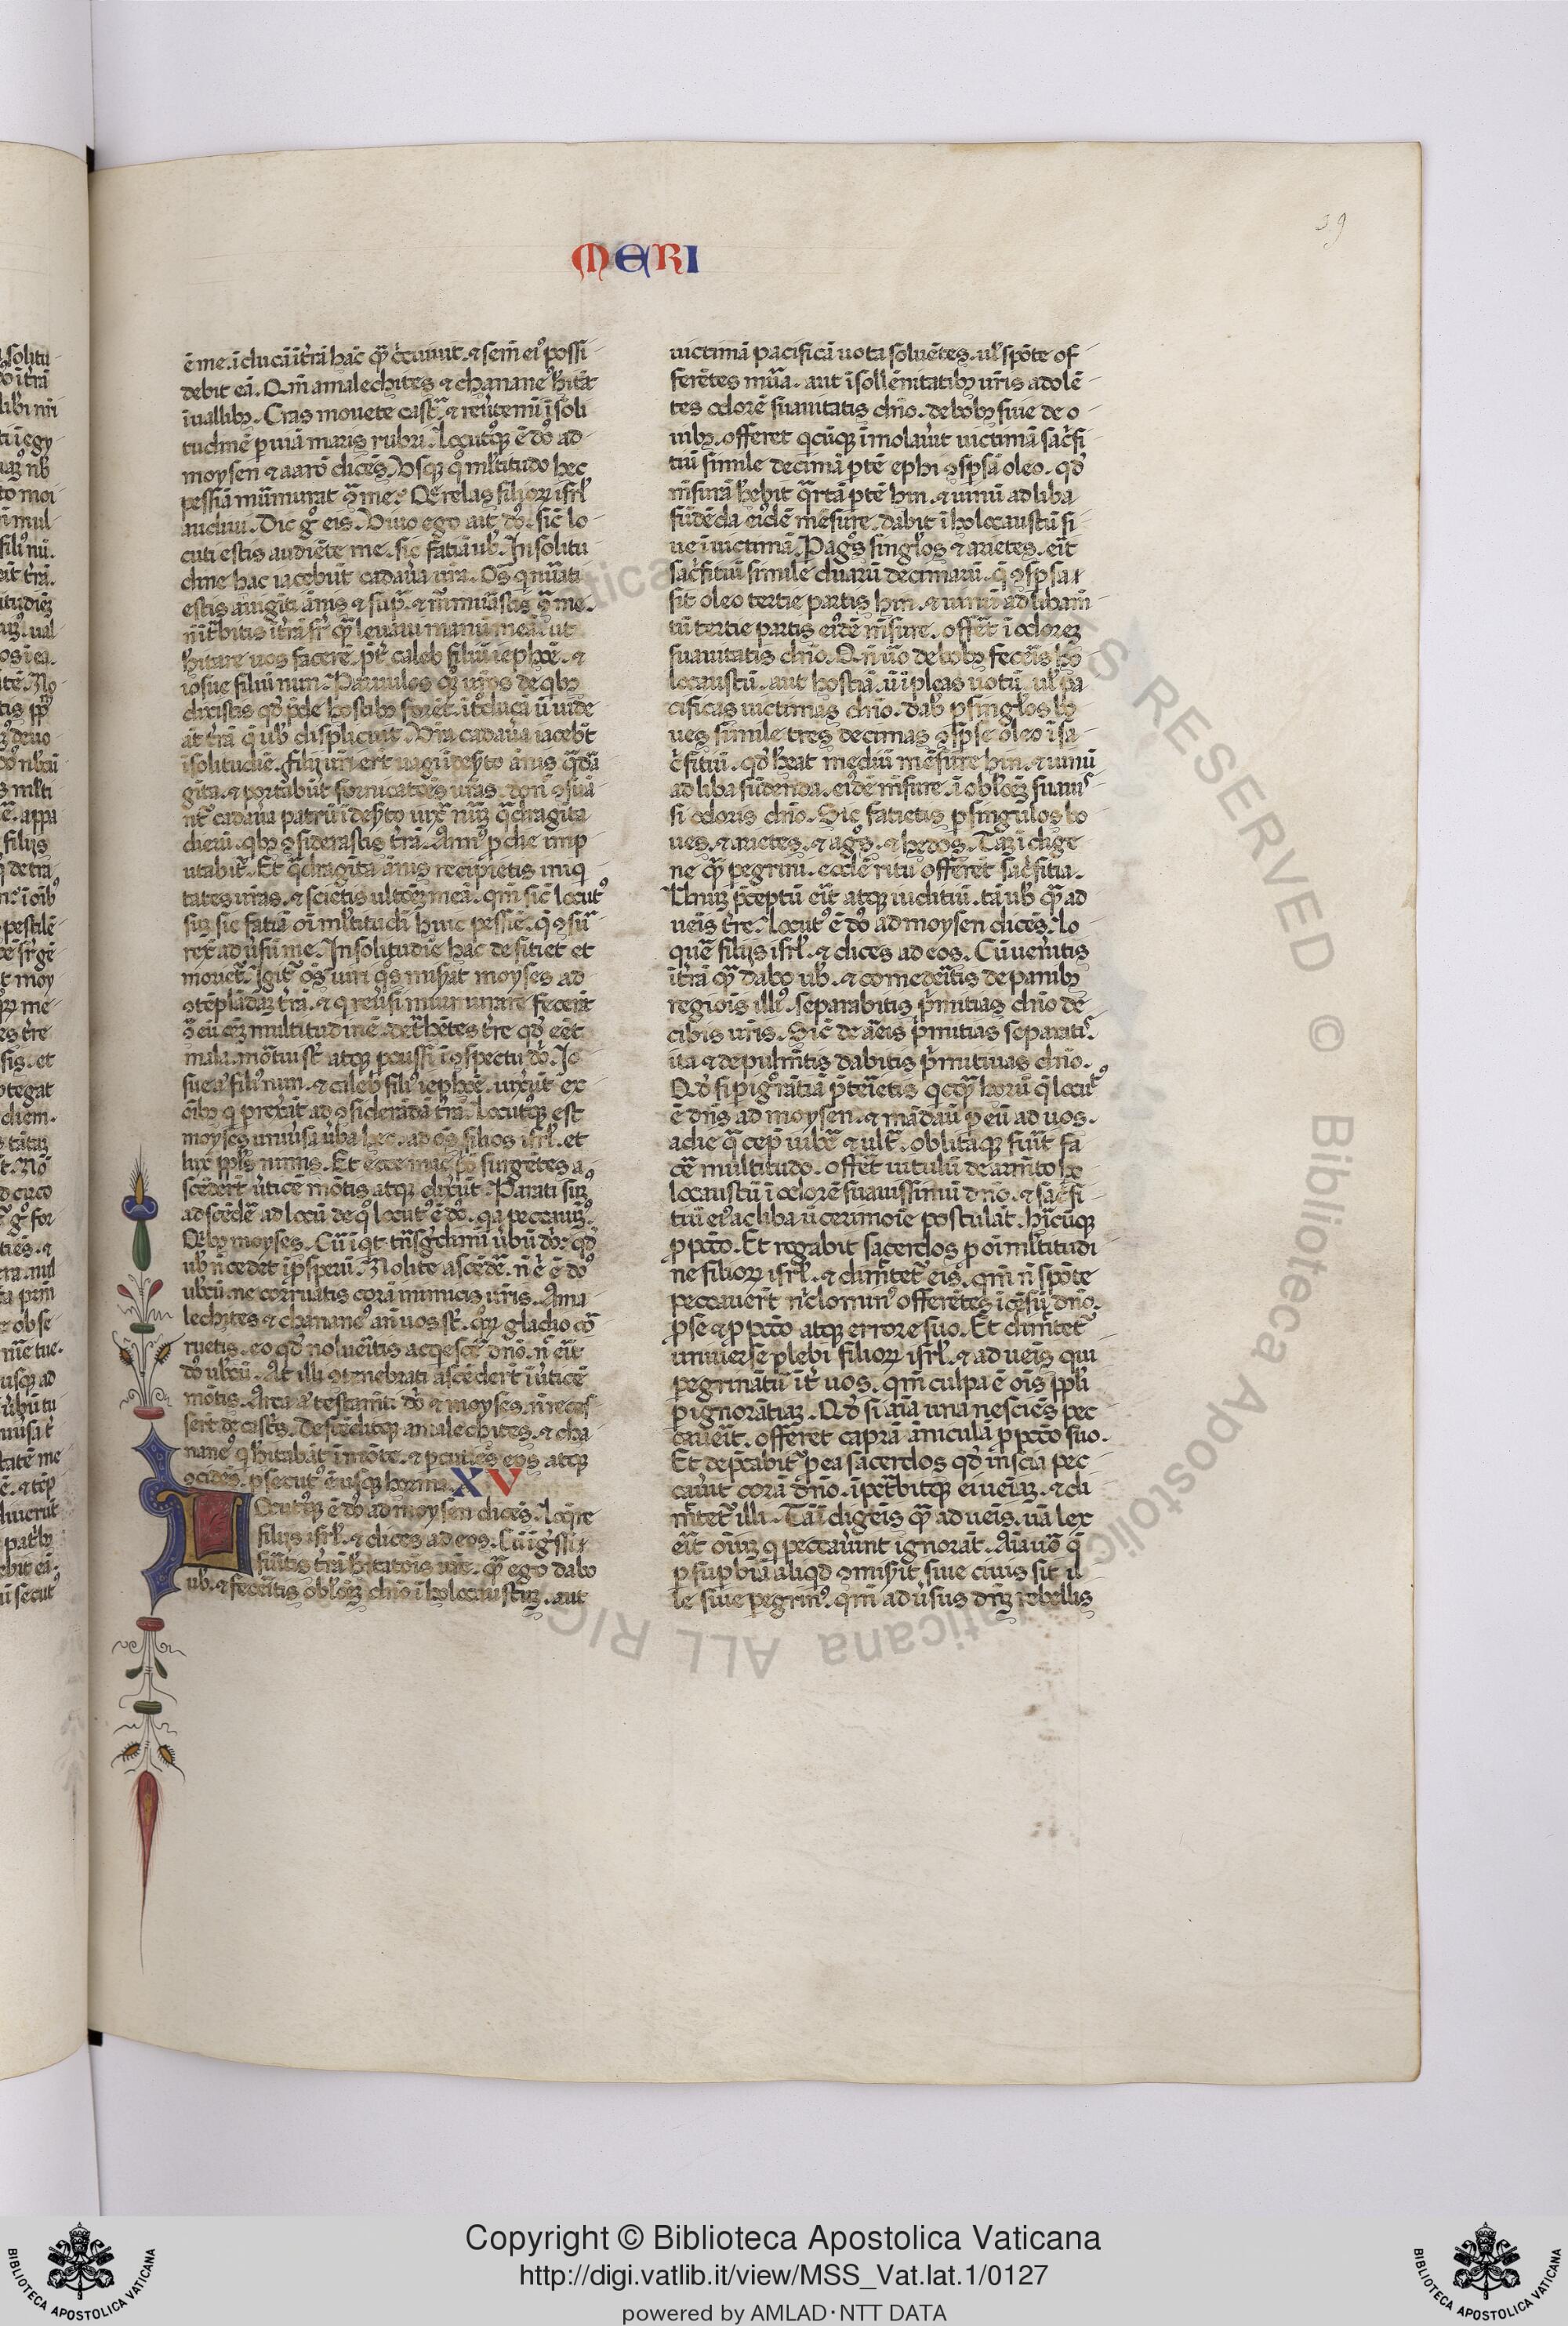 MERI
ē me. īducā ī tr̄ā hāc quā c̄cuiuit. ⁊ semē eiꝰ possi-
debit eā. Qm̄ amalechites ⁊ chananeꝰ hītāt
ī uallibꝫ. Cras mouete castra ⁊ reūtemī ī soli-
tudinē p uiā maris rubri. Locutꝰqꝫ ē dōs ad-
moysen ⁊ aarō dicēs. Vsqꝫ qo ml̄titudo hec
pessīa mūmurat ↄ̄ me? Q̄relas filioꝝ isrl̄
audiui. Dic gͦ eis. Viuo ego ait dōs. sic̄ lo-
cuti estis audiēte me. sic fatiā ub̄. In solitu-
dine hac iacebūt cadaūa ur̄a. Oēs q nūati
estis a uigīti ānis ⁊ supͣ. ⁊ mūmurastis ↄ̄ me.
nō ītͣbitis tr̄ā sr̄ quā leuaui manū meā. ut
hītare uos facerē. pt̄ caleb filiū iephōe. ⁊
iosue filiū nun. Paruulos aūt uros de qbꝫ
dixistis qd̄ pde hostibꝫ forēt. ītͦducā ū uide-
āt tr̄ā q̄ ub̄ displicuit. Vr̄a cadaūa iacebt̄
ī solitudīe. filij ur̄i er̄t uagi ī deserto ānis qdͣ-
gīta. ⁊ portabūt fornicatōēs ur̄as. donec ↄsuā-
nt̄ cadaūa patrū ī desto. iuxͣ nūm̄ qͣdragīta
dierū. qbꝫ ↄsiderastis tr̄ā. Annꝰ p die imp-
utabit̄. Et qͣdragīta ānis recipietis iniq-
tates ur̄as. ⁊ scietis ultōēꝫ meā. qm̄ sic̄ locutꝰ
suꝫ sic fatiā oī ml̄titudī huic pessīe. q̄ ↄsur-
rex̄ adūsū me. In solitudīe hāc desitiet et
moriet̄. Igit̄ oēs uiri qs misat moyses ad
ↄtēplādaꝫ tr̄ā. ⁊ q reūsi murmurare fecerāt
ↄ̄ eū eꝫ multitudinē. detͣhētes tr̄e qd̄ eēt
mala. mortui st̄ atqꝫ pcussi ī ↄspectu dōi. Io-
sue aūt filiꝰ nun. ⁊ caleb filiꝰ iephōe. uixer̄t ex
oībꝫ q prex̄āt ad ↄsiderādā tr̄ā. Locutꝰqꝫ est
moyses uniūsa ūba hec. ad oēs filios isrl̄. et
lux̄ ppls̄ nimis. Et ecce mane pͦ surgētes a-
scēder̄t ūticē mōtis atqꝫ dixer̄t. Parati sumꝰ
ascēdē ad locū de qͦ locutꝰ ē dōs. qa peccauimꝰ.
Qibꝫ moyses. Cū īqt tnsgredimī ūbū dōi. qd̄
ub̄ nō cedet īpsperū. Nolite ascēdē. nō ē ē dōs
ubcū. ne corruatis corā inimicis ur̄is. Ama-
lechites ⁊ chananeꝰ an̄ uos st̄. qoꝝ gladio cor-
ruetis. eo qd̄ nolueītis acqescē dnō. n̄ erit
dōs ubcū. At illi ↄtenebrati ascēder̄t ī ūticē
mōtis. Arca aūt testamti dōi ⁊ moyses. nō reces-
ser̄t de castris. Descēditqꝫ amalechites. ⁊ cha-
naneꝰ q hītabāt ī mōte. ⁊ pcutiēs eos atqꝫ
ↄcidēs. psecutꝰ ē usqꝫ horma. XV
Locutꝰqꝫ ē dōs ad moysen dicēs. Loqͣre
filijs isrl̄. ⁊ dices ad eos. Cū īgssi
fuītis trā hītatōis ur̄e. quā ego dabo
ub̄. ⁊ fecetis obloēꝫ dnō ī holocaustuꝫ. aut
uictimā pacificā uota soluētes. ul̄ spōte of-
ferētes mūa. aut ī sollēnitatibꝫ ur̄is adolē-
tes odorē suauitatis dnō. de bobꝫ siue de o-
uibꝫ. offeret qcūqꝫ īmolaūit uictimā sacͥfi-
tiū simile decimā ptē ephi ↄspsā oleo. qd̄
mēsurā hēbit qͣrtā ptē hin. ⁊ uinū ad liba
fūdēda eiꝰdē mēsure. dabit ī holocaustū si-
ue ī uictimā. P agͦs singl̄os ⁊ arietes. erit
sacͥfitiū simile duarū decimarū. q̄ ↄspsa
sit oleo tertie partis hin. ⁊ uinū ad libam̄-
tū tertie partis eiꝰdē mēsure. offet̄ ī odoreꝫ
suauitatis dnō. Qn̄ uō de bobꝫ feceis ho-
locaustū. aut hostiā. ut īpleas uotū. ul̄ pa-
cificas uictimas dnō. dab̄ p singl̄os bo-
ues simile tres decimas ↄspse oleo ī sa-
cͥfitiū. qd̄ hēat mediū mēsure hin. ⁊ uinū
ad liba fūdenda. eiꝰdē mēsure. ī obl̄oēꝫ suauis-
si odoris dnō. Sic fatietis p singulos bo-
ues. ⁊ arietes. ⁊ agͦs. ⁊ hedos. Taꝫ īdige-
ne quā pegrini. eodē ritu offerēt sacͥfitia.
Vnuꝫ pceptū erit atqꝫ iuditiū. tā ub̄ quā ad-
ueis tr̄e. Locutꝰ ē dōs ad moysen dicēs. Lo-
quē filijs isrl̄. ⁊ dices ad eos. Cū uenitis
ī tr̄ā quā dabo ub̄. ⁊ comedeītis de panibꝫ
regiois illiꝰ. separabitis pͥmitias dnō de
cibis ur̄is. Sic̄ de aēis pͥmitias separatis.
ita ⁊ de pulm̄tis dabitis pͥmitiuas dnō.
Qd̄ si p ignorātiā pteietis qcqͣ horū q̄ locutꝰ
ē dn̄s ad moysen. ⁊ mādauit p eū ad uos.
a die qͣ cepit iubē ⁊ ultͣ. oblitaqꝫ fuit̄ fa-
cē multitudo. offet̄ uitulū de armto ho-
locaustū ī odorē suauissimū dnō. ⁊ sacͥfi-
tiū eiꝰ ac liba ut cerimoīe postulāt. hircūqꝫ
p pctō. Et rogabit sacerdos p oī ml̄titudi-
ne filioꝝ isrl̄. ⁊ dimittet̄ eis. qm̄ nō spōte
peccauer̄t. n̄lominꝰ offerētes īcēsū dnō.
p se ⁊ p pctō atqꝫ errore suo. Et dimittet̄
uniuerse plebi filioꝝ isrl̄. ⁊ adueis qui
pegrinātur īt̄ uos. qm̄ culpa ē ois ppl̄i
p ignorātiaꝫ. Qd̄ si aīa una nesciēs pec-
caueit. offeret caprā āniculā p pctō suo.
Et depcabit̄ p ea sacerdos qd̄ inscia pec-
caūit corā dnō. īpetͣbitqꝫ ei ueiaꝫ. ⁊ di-
mittet̄ illi. Tā īdigeis quā adueis. una lex
erit oīuꝫ q peccaūint ignorāt. Aīa uō q̄
p supbiā aliqd ↄmisit siue ciuis sit il-
le siue pegrinꝰ. qm̄ adūsus dnꝫ rebellis
Copyright © Biblioteca Apostolica Vaticana
http://digi.vatlib.it/view/MSS_Vat.lat.1/0127
powered by AMLAD·NTT DATA